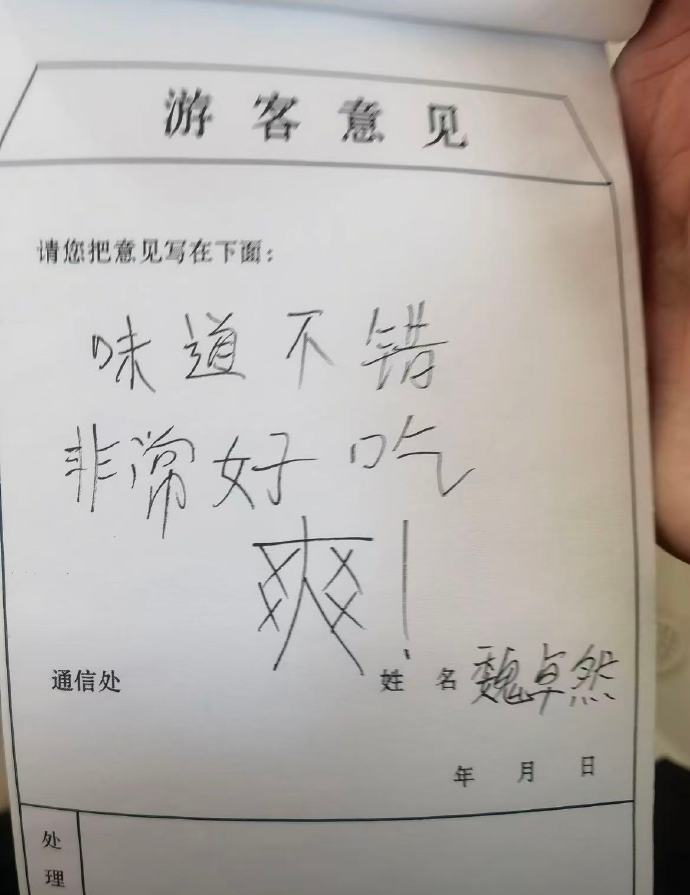 游客意见
请您把意见写在下面：
味道不错
非常好吃
爽！
通信处 姓名 魏卓然
年 月 日
处理